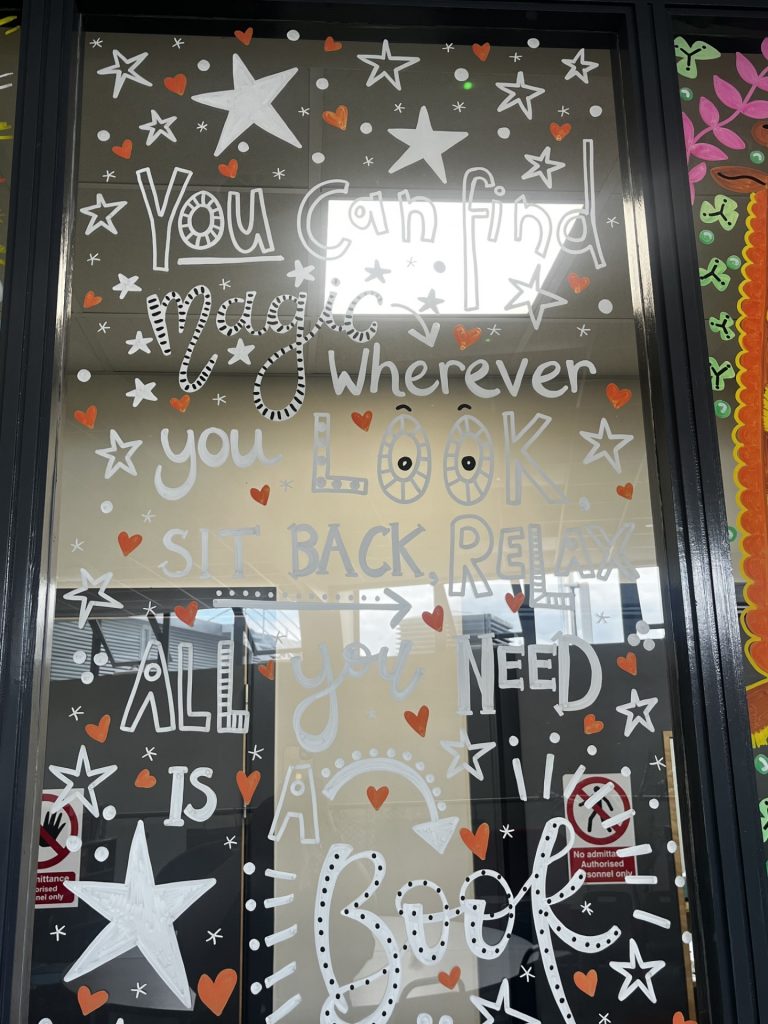 You can find
magic
wherever
you LOOK,
SIT BACK, RELAX
ALL you NEED
IS A
Book
mittance
orised
nel only
No admittance
Authorised
personnel only